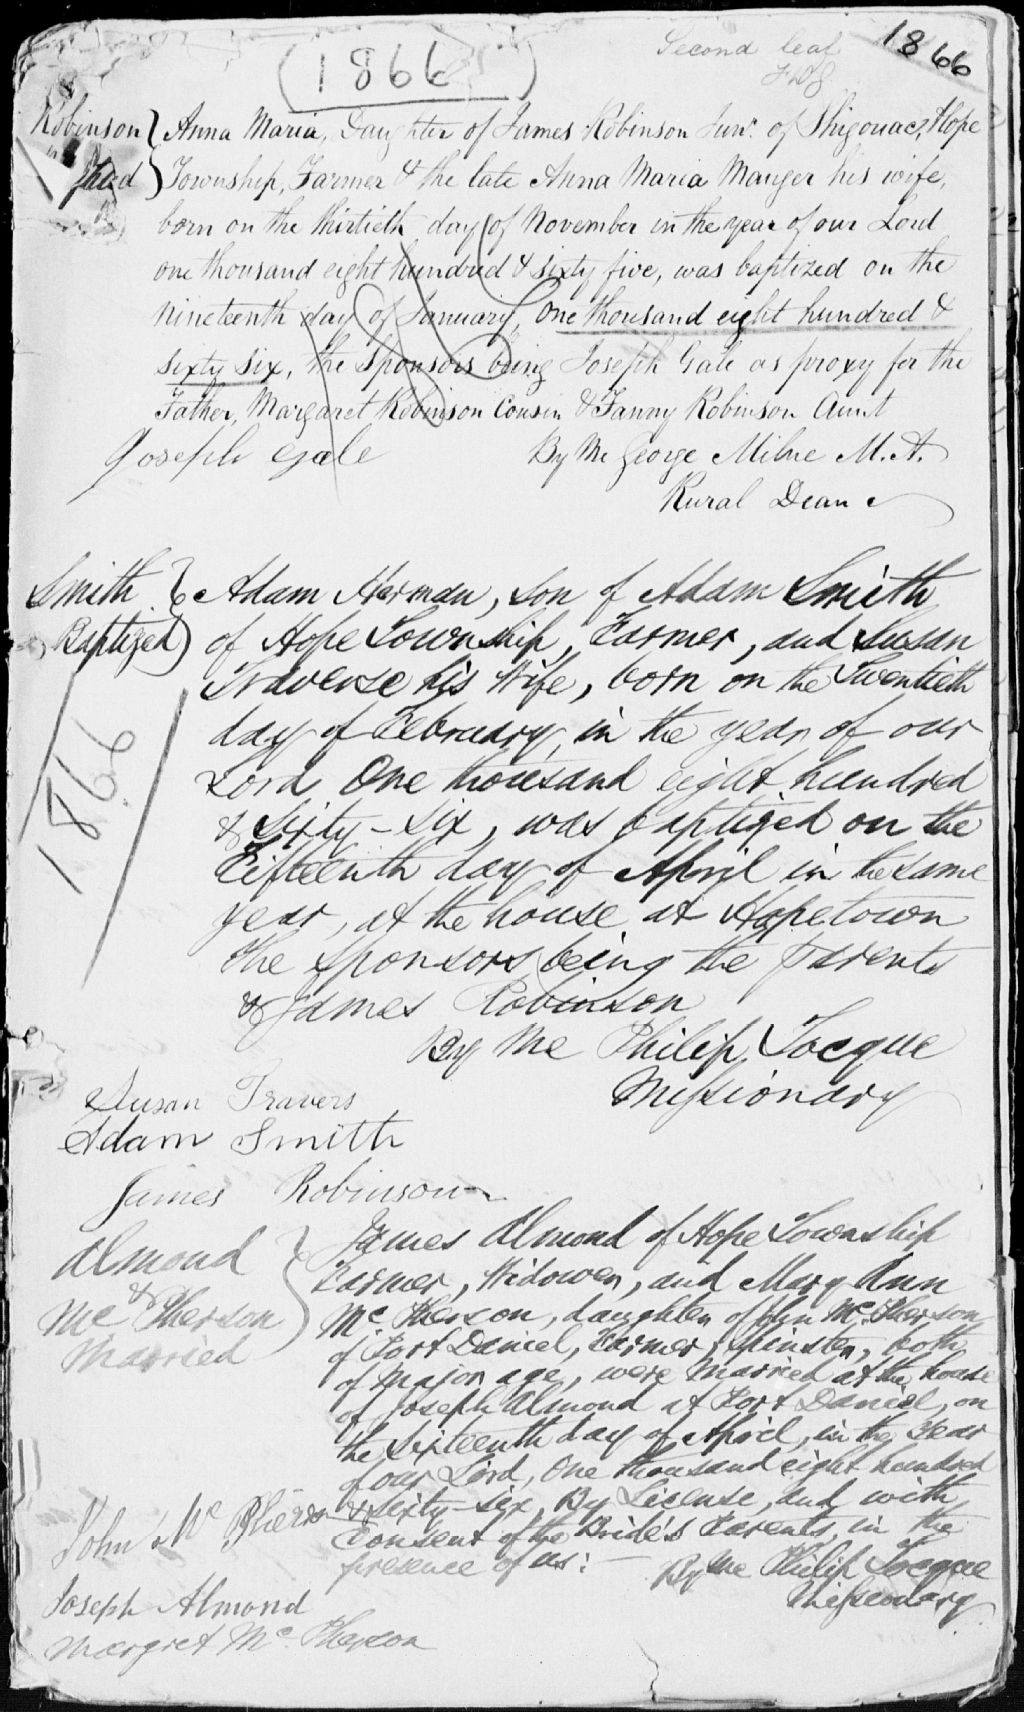 (1866)
Second leaf
1866
Robinson } Anna Maria, Daughter of James Robinson Junr. of Shigouac, Hope
Township, Farmer & the late Anna Maria Mauger his wife,
born on the thirtieth day of November in the year of our Lord
one thousand eight hundred & sixty five, was baptized on the
nineteenth day of January, One thousand eight hundred &
sixty six, the sponsors being Joseph Gale as proxy for the
Father, Margaret Robinson Cousin & Fanny Robinson Aunt
Joseph Gale By Me George Milne M.A.
Rural Dean
Smith } Adam Harman, Son of Adam Smith
Baptized) of Hope Township, Farmer, and Susan
Traverse his Wife, born on the Twentieth
day of February, in the year of our
Lord One thousand eight hundred
& Sixty-six, was baptized on the
Fifteenth day of April in the same
year, at the house at Hopetown
the sponsors being the parents
& James Robinson
By Me Philip Tocque
Missionary
1866
Susan Travers
Adam Smith
James Robinson
Almond } James Almond of Hope Township
& Farmer, Widower, and Mary Ann
Mc Pherson McPherson, daughter of John McPherson
Married of Port Daniel, Farmer, Spinster, both
of major age, were married at the house
of Joseph Almond at Port Daniel, on
the Sixteenth day of April, in the Year
of our Lord, One thousand eight hundred
& sixty-six, By License, and with
John Mc Pherson Consent of the Bride's Parents, in the
presence of us: — By Me Philip Tocque
Missionary
Joseph Almond
Margret Mc Pherson